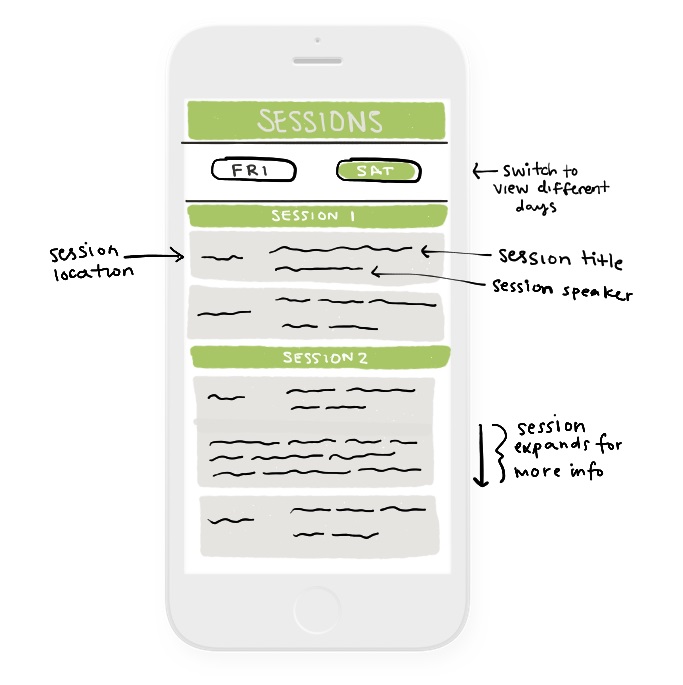 SESSIONS
FRI
SAT
← switch to
view different
days
SESSION 1
session
location
session title
session speaker
SESSION 2
session
expands for
more info